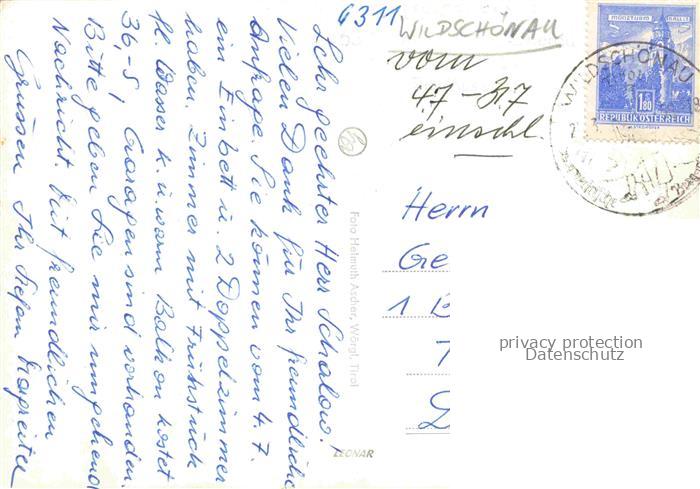 Sehr geehrter Herr Schalow!
Vielen Dank für Ihr freundliche
Anfrage. Sie können vom 4.7.
ein Einbett u. 2 Doppelzimmer
haben. Zimmer mit Frühstück
fl. Wasser k. u. warm Balkon kostet
36,- S, Garagen sind vorhanden.
Bitte geben Sie mir umgehend
Nachricht. Mit freundlichen
Grüssen Ihr Stefan
6311 WILDSCHÖNAU
vom
4.7 - 31.7
einschl.
Herrn
Ge
1 B
Foto Helmuth Ascher, Wörgl, Tirol
LEONAR
MÜNZTURM HALL
1.80
REPUBLIK ÖSTERREICH
WILDSCHÖNAU
privacy protection
Datenschutz